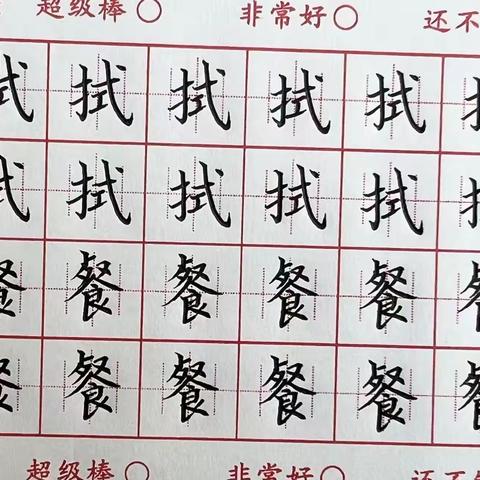 超级棒 非常好 还不
拭 拭 拭 拭 拭
拭 拭 拭 拭 拭
餐 餐 餐 餐 餐
餐 餐 餐 餐 餐
超级棒 非常好 还不